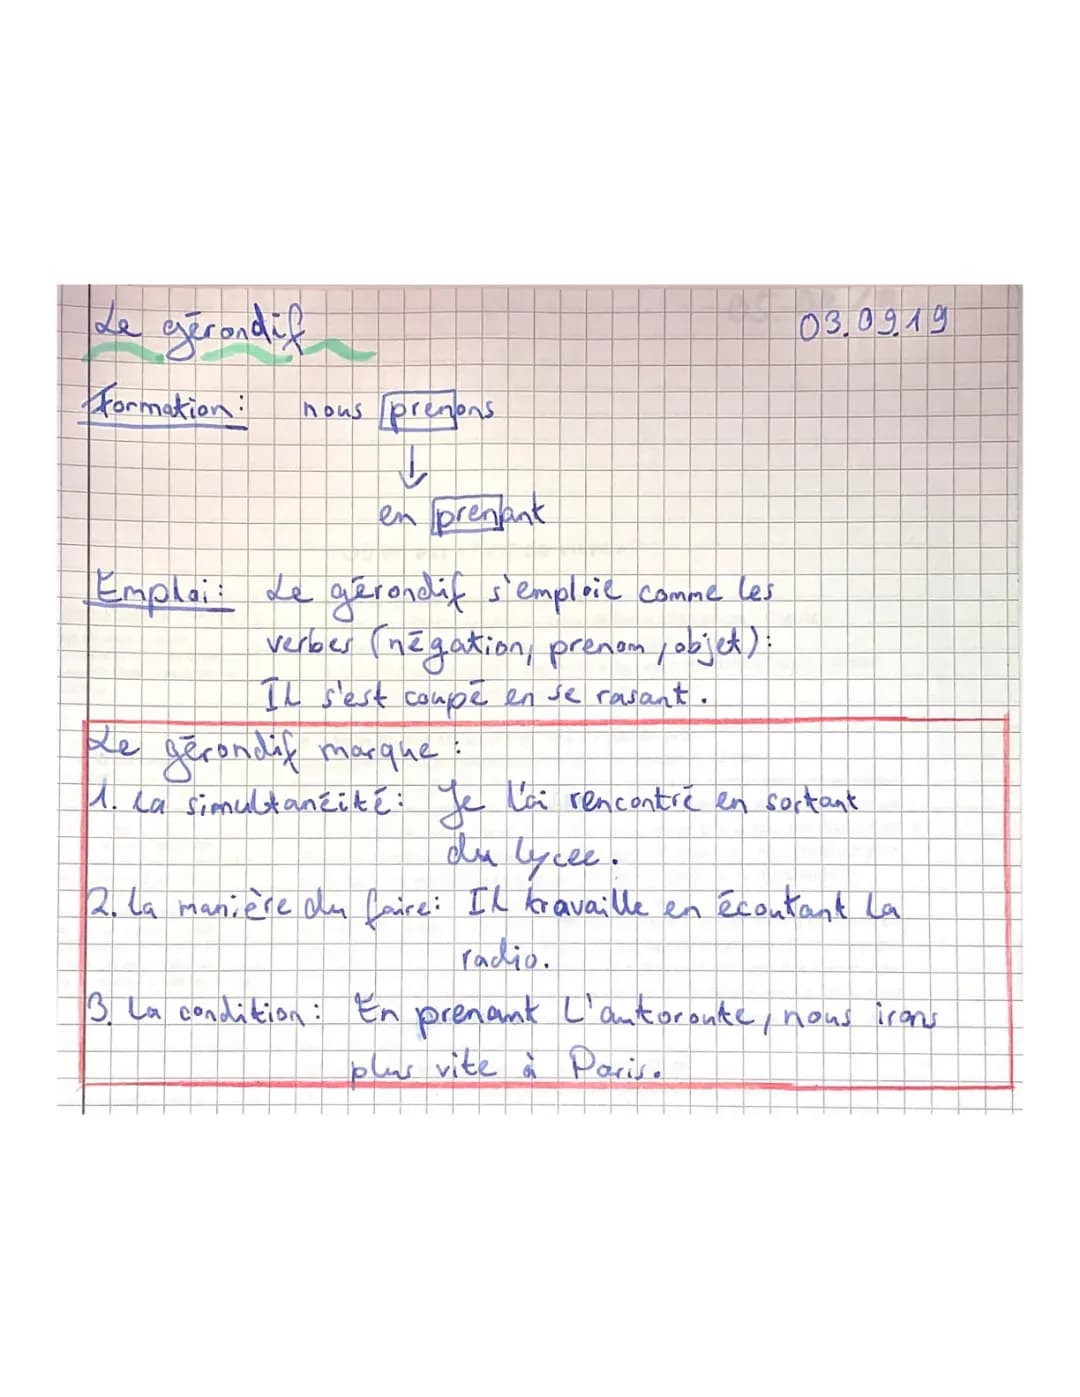 Le gérondif 03.09.19
Formation: nous prenons
↓
en prenant
Emploi: Le gérondif s'emploie comme les
verbes (négation, prenom, objet):
Il s'est coupé en se rasant.
Le gérondif marque:
1. La simultanéité: Je l'ai rencontré en sortant
du lycee.
2. La manière du faire: Il travaille en écoutant la
radio.
3. La condition: En prenant l'autoroute, nous irons
plus vite à Paris.